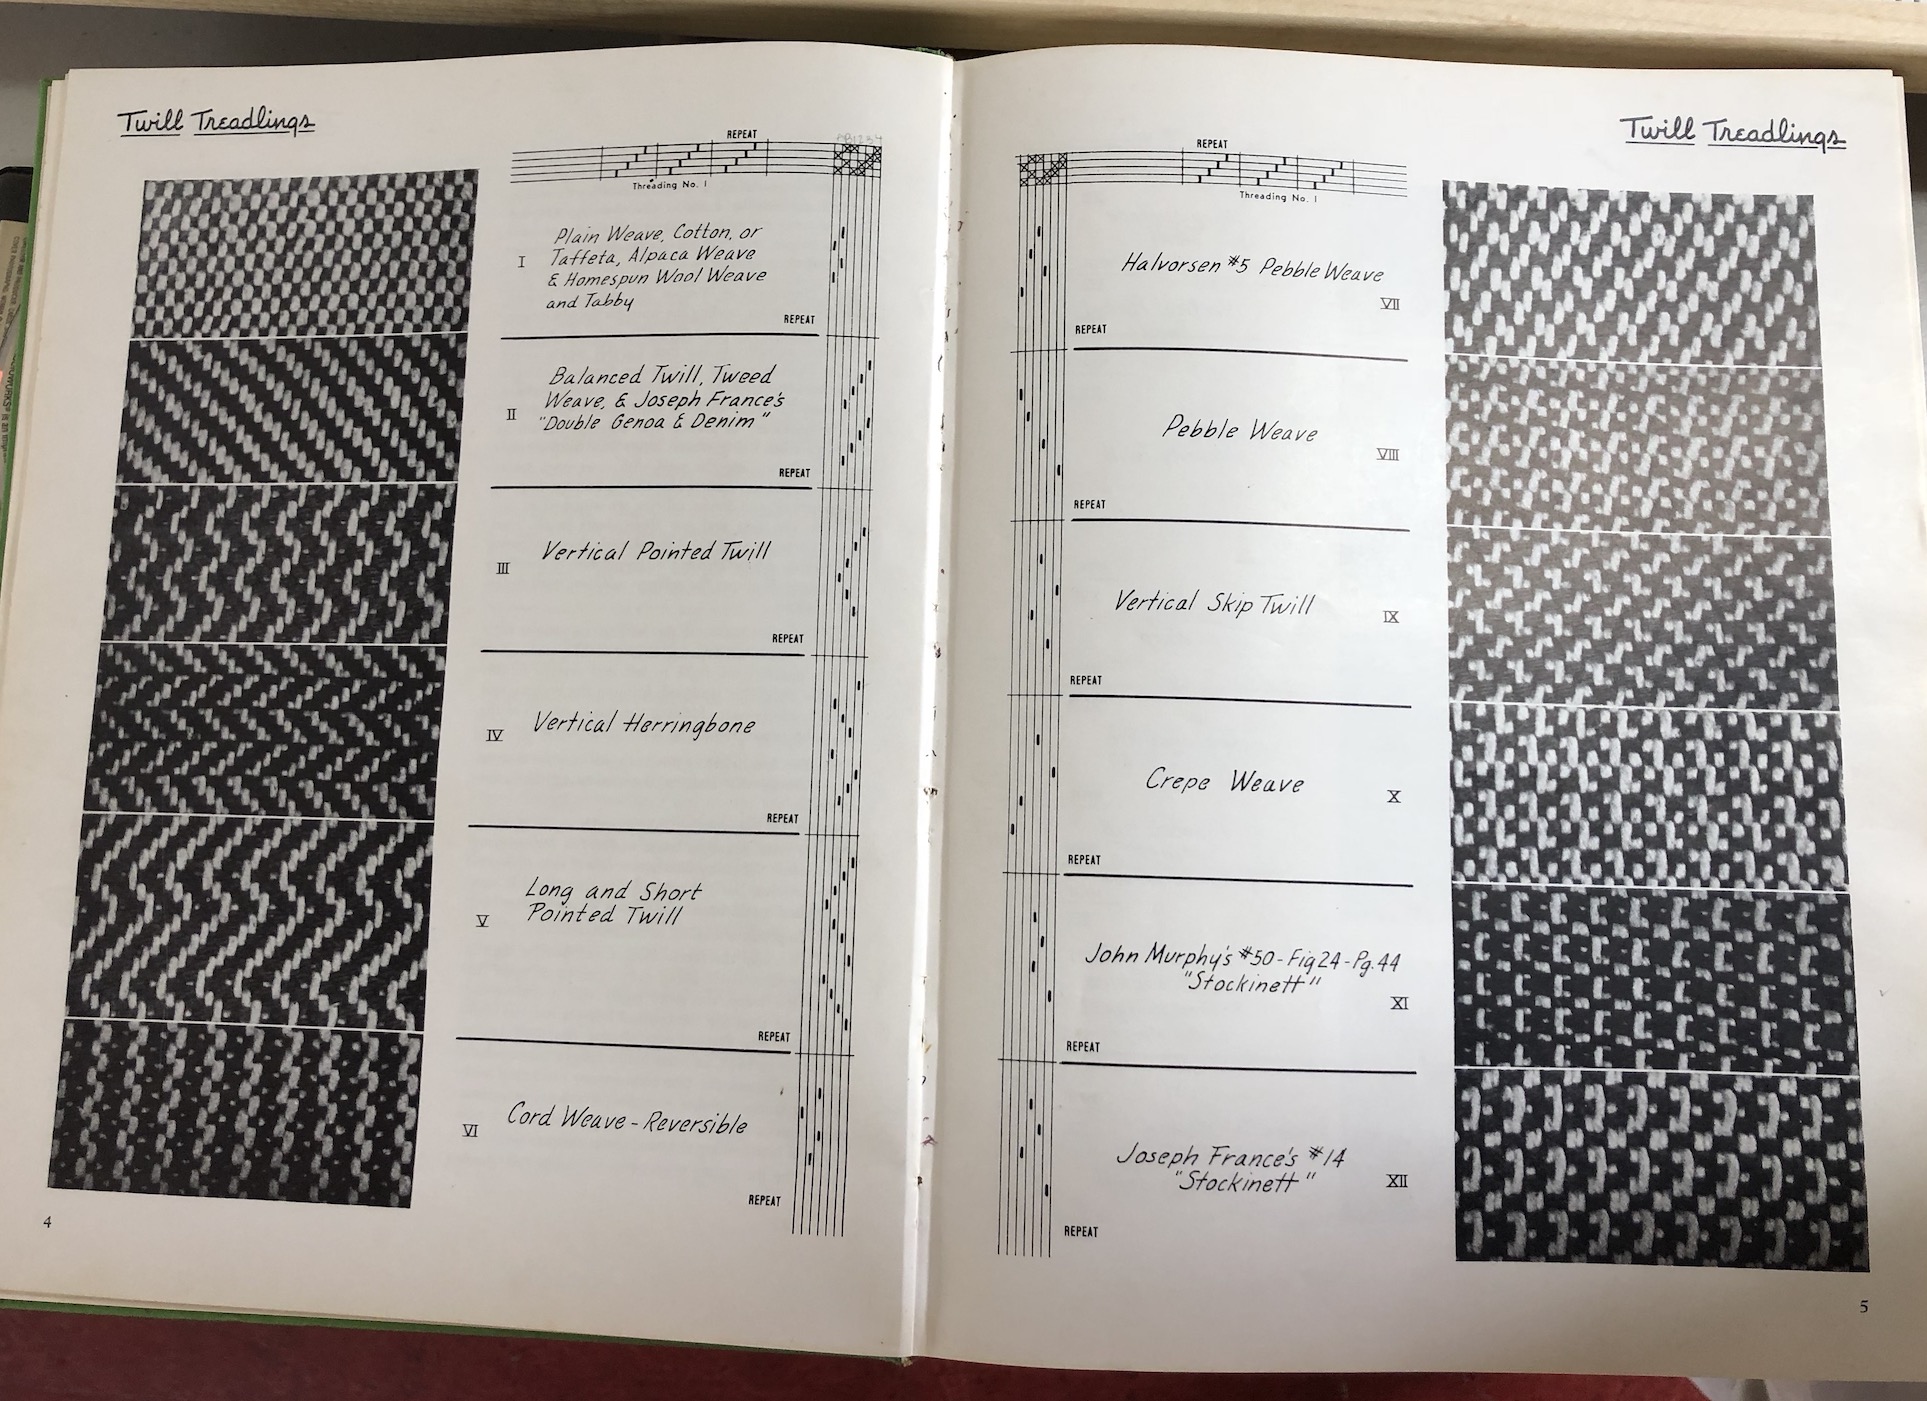 Twill Treadlings
REPEAT
Threading No. 1
I
Plain Weave, Cotton, or
Taffeta, Alpaca Weave
& Homespun Wool Weave
and Tabby
REPEAT
II
Balanced Twill, Tweed
Weave, & Joseph France's
"Double Genoa & Denim"
REPEAT
III
Vertical Pointed Twill
REPEAT
IV
Vertical Herringbone
REPEAT
V
Long and Short
Pointed Twill
REPEAT
VI
Cord Weave - Reversible
REPEAT
4
Twill Treadlings
REPEAT
Threading No. 1
Halvorsen #5 Pebble Weave
VII
REPEAT
Pebble Weave
VIII
REPEAT
Vertical Skip Twill
IX
REPEAT
Crepe Weave
X
REPEAT
John Murphy's #50 - Fig 24 - Pg. 44
"Stockinett"
XI
REPEAT
Joseph France's #14
"Stockinett"
XII
REPEAT
5